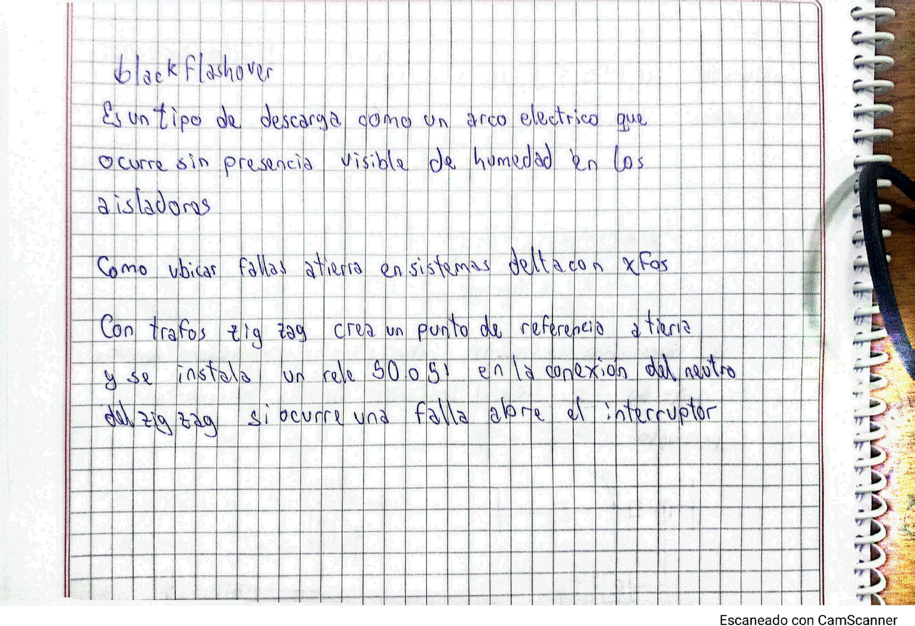 blackflashover
Es un tipo de descarga como un arco electrico que
ocurre sin presencia visible de humedad en los
aisladores
Como ubicar fallas a tierra en sistemas delta con xFos
Con trafos zig zag crea un punto de referencia a tierra
y se instala un rele 50 o 51 en la conexión del neutro
del zig zag si ocurre una falla abre el interruptor
Escaneado con CamScanner